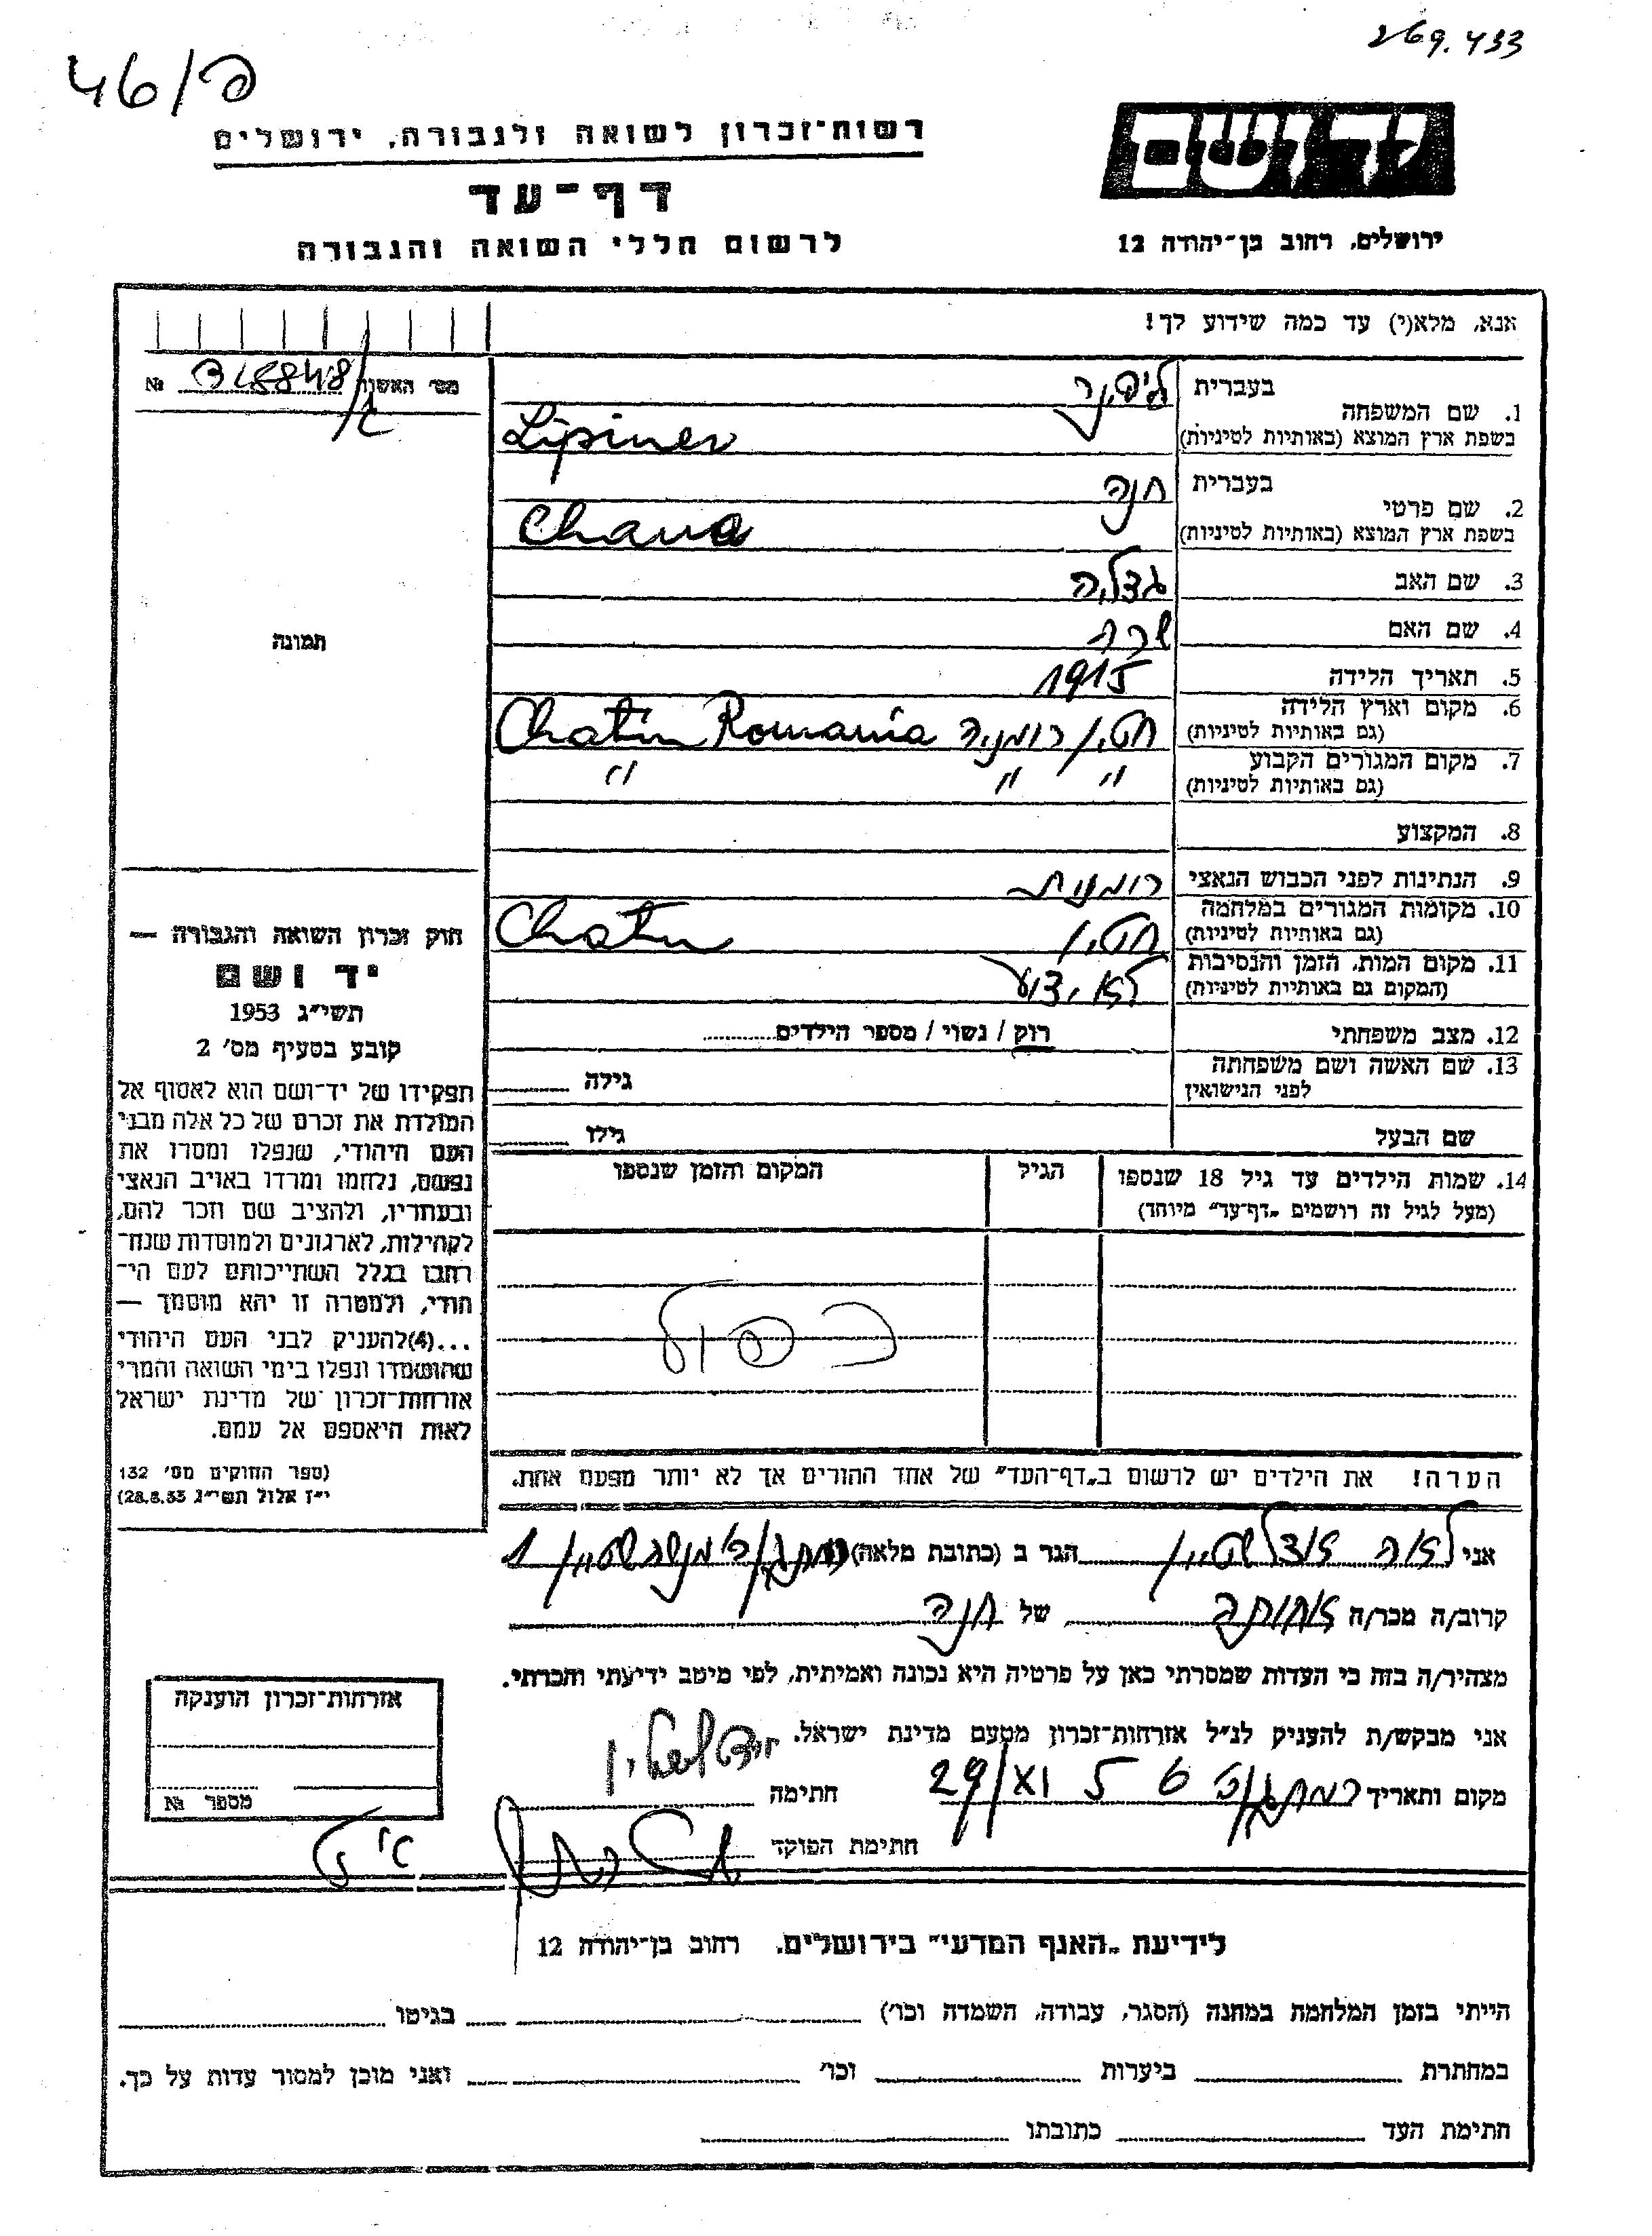 269.433
46/פ
יד ושם
רשות־זכרון לשואה ולגבורה, ירושלים
דף־עד
לרשום חללי השואה והגבורה
ירושלים, רחוב בן־יהודה 12
אנא, מלא(י) עד כמה שידוע לך!
מס׳ האשור №
1. שם המשפחה
בעברית ליפינר
בשפת ארץ המוצא (באותיות לטיניות) Lipiner
2. שם פרטי
בעברית חנה
בשפת ארץ המוצא (באותיות לטיניות) Chana
3. שם האב גדליה
4. שם האם שרה
5. תאריך הלידה 1915
6. מקום וארץ הלידה
(גם באותיות לטיניות) חטין רומניה Chatin Romania
7. מקום המגורים הקבוע
(גם באותיות לטיניות) " " "
8. המקצוע
9. הנתינות לפני הכבוש הנאצי רומנית
10. מקומות המגורים במלחמה
(גם באותיות לטיניות) חטין Chatin
11. מקום המות, הזמן והנסיבות
(המקום גם באותיות לטיניות) לא ידוע
12. מצב משפחתי רווק / נשוי / מספר הילדים
13. שם האשה ושם משפחתה
לפני הנישואין גילה
שם הבעל גילו
14. שמות הילדים עד גיל 18 שנספו
(מעל לגיל זה רושמים „דף־עד" מיוחד)
הגיל
המקום והזמן שנספו
כפול
תמונה
חוק זכרון השואה והגבורה —
יד ושם
תשי״ג 1953
קובע בסעיף מס׳ 2
תפקידו של יד־ושם הוא לאסוף אל
המולדת את זכרם של כל אלה מבני
העם היהודי, שנפלו ומסרו את
נפשם, נלחמו ומרדו באויב הנאצי
ובעוזריו, ולהציב שם וזכר להם,
לקהילות, לארגונים ולמוסדות שנח־
רבו בגלל השתייכותם לעם הי־
הודי, ולמטרה זו יהא מוסמך —
...(4) להעניק לבני העם היהודי
שהושמדו ונפלו בימי השואה והמרי
אזרחות־זכרון של מדינת ישראל
לאות היאספם אל עמם.
(ספר החוקים מס׳ 132
י״ז אלול תשי״ג 28.8.53)
הערה! את הילדים יש לרשום ב„דף־העד" של אחד ההורים אך לא יותר מפעם אחת.
אני לאה אדלשטיין הגר ב (כתובת מלאה) רמת גן 1
קרוב/ה מכר/ה אחותה של חנה
מצהיר/ה בזה כי העדות שמסרתי כאן על פרטיה היא נכונה ואמיתית, לפי מיטב ידיעתי והכרתי.
אני מבקש/ת להעניק לנ״ל אזרחות־זכרון מטעם מדינת ישראל.
מקום ותאריך רמת גן 29/XI 5 6 חתימה
חתימת הפוקד
אזרחות־זכרון הוענקה
מספר №
לידיעת „האגף המדעי" בירושלים, רחוב בן־יהודה 12
הייתי בזמן המלחמה במחנה (הסגר, עבודה, השמדה וכו׳) בגיטו
במחתרת ביערות וכו׳ ואני מוכן למסור עדות על כך.
חתימת העד כתובתו